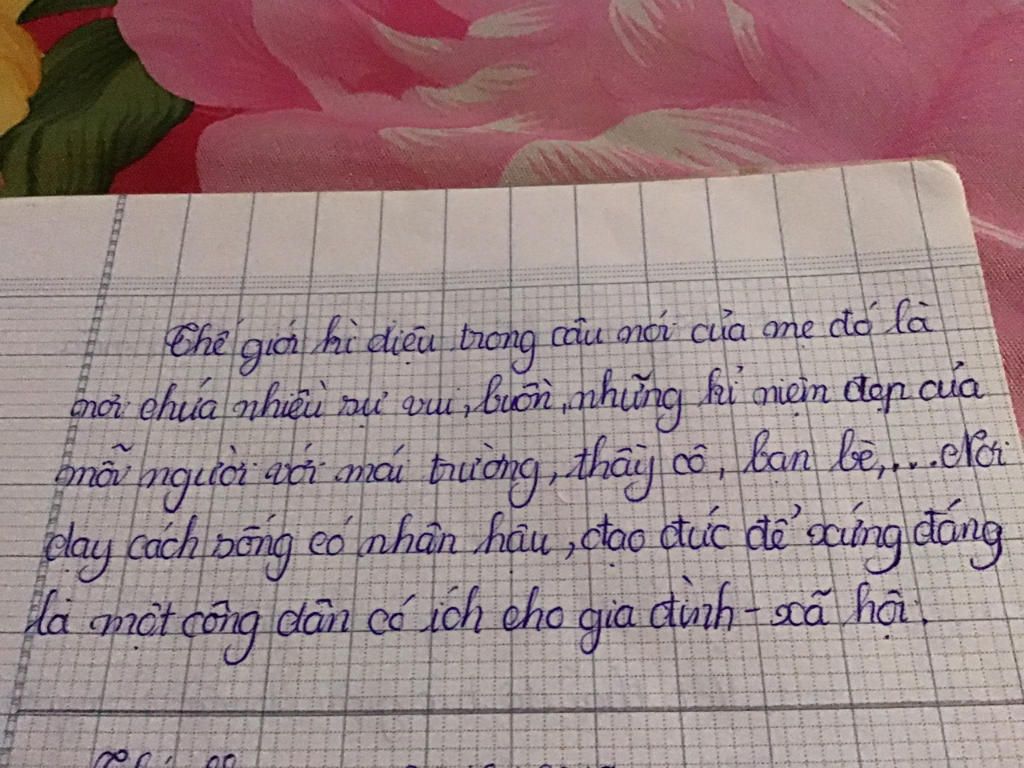 Thế giới kì diệu trong câu nói của mẹ đó là
nơi chứa nhiều sự vui, buồn, những kỉ niệm đẹp của
mỗi người với mái trường, thầy cô, bạn bè,... Nơi
dạy cách sống có nhân hậu, đạo đức để xứng đáng
là một công dân có ích cho gia đình - xã hội.